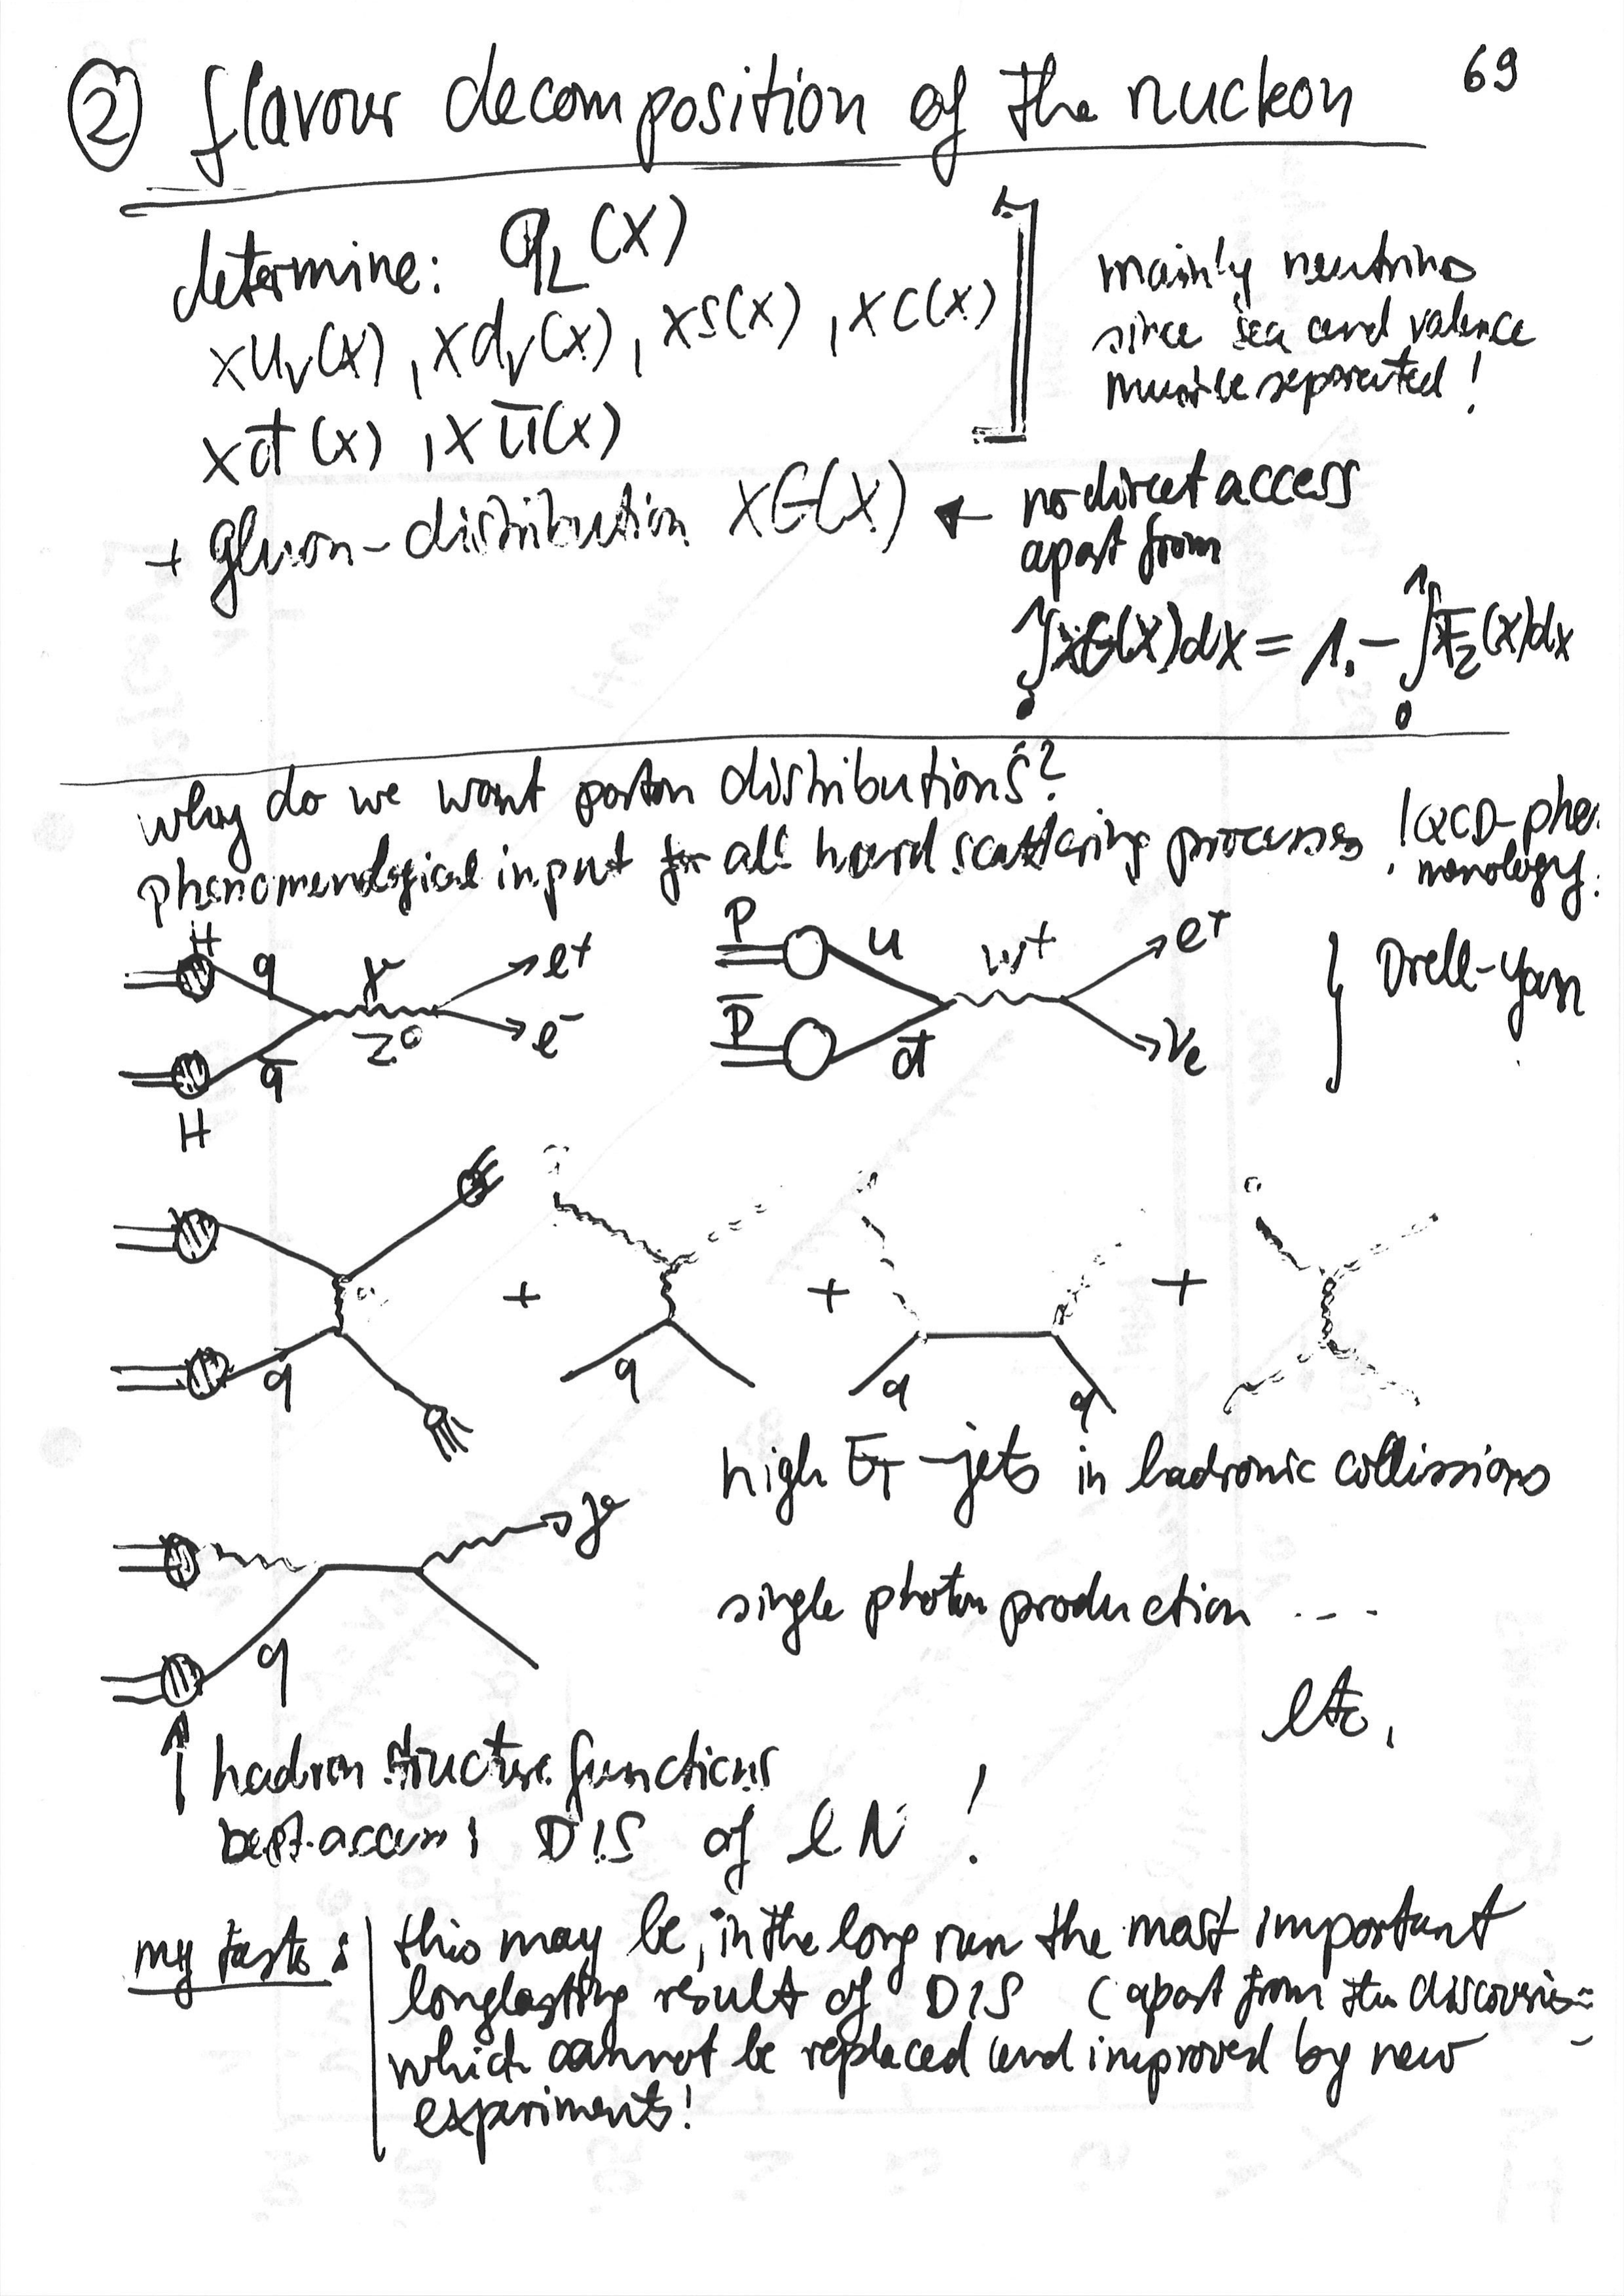 69
② flavour decomposition of the nucleon
determine: q_L(x)
xu_v(x), xd_v(x), xs(x), xc(x)
xd̄(x), xū(x)
mainly neutrino
since sea and valence
must be separated!
+ gluon-distribution xG(x) ← no direct access
apart from
∫₀¹xG(x)dx = 1. - ∫₀¹F₂(x)dx
why do we want parton distributions?
phenomenological input for all hard scattering processes ! QCD-phe-
nomenology.
H q γ e+ P u W+ e+ } Drell-Yan
q̄ Z⁰ e- P̄ d̄ νe
H
+ + +
q q q q
high E_T-jets in hadronic collissions
γ
single photon production ...
q
etc.
↑ hadron structure functions
best access: DIS of lN !
my taste: this may be, in the long run the most important
longlasting result of DIS (apart from the discoveries
which cannot be replaced and improved by new
experiments!